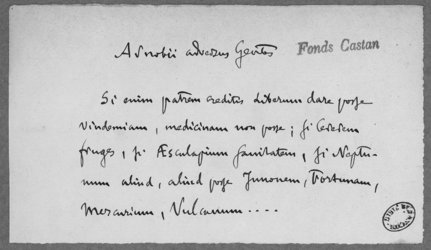 Arnobii adversus Gentes
Fonds Castan
Si enim patrem creditis Liberum dare posse
vindemiam, medicinam non posse ; si Cererem
fruges, si Æsculapium sanitatem, si Neptu-
num aliud, aliud posse Junonem, Fortunam,
Mercurium, Vulcanum ....